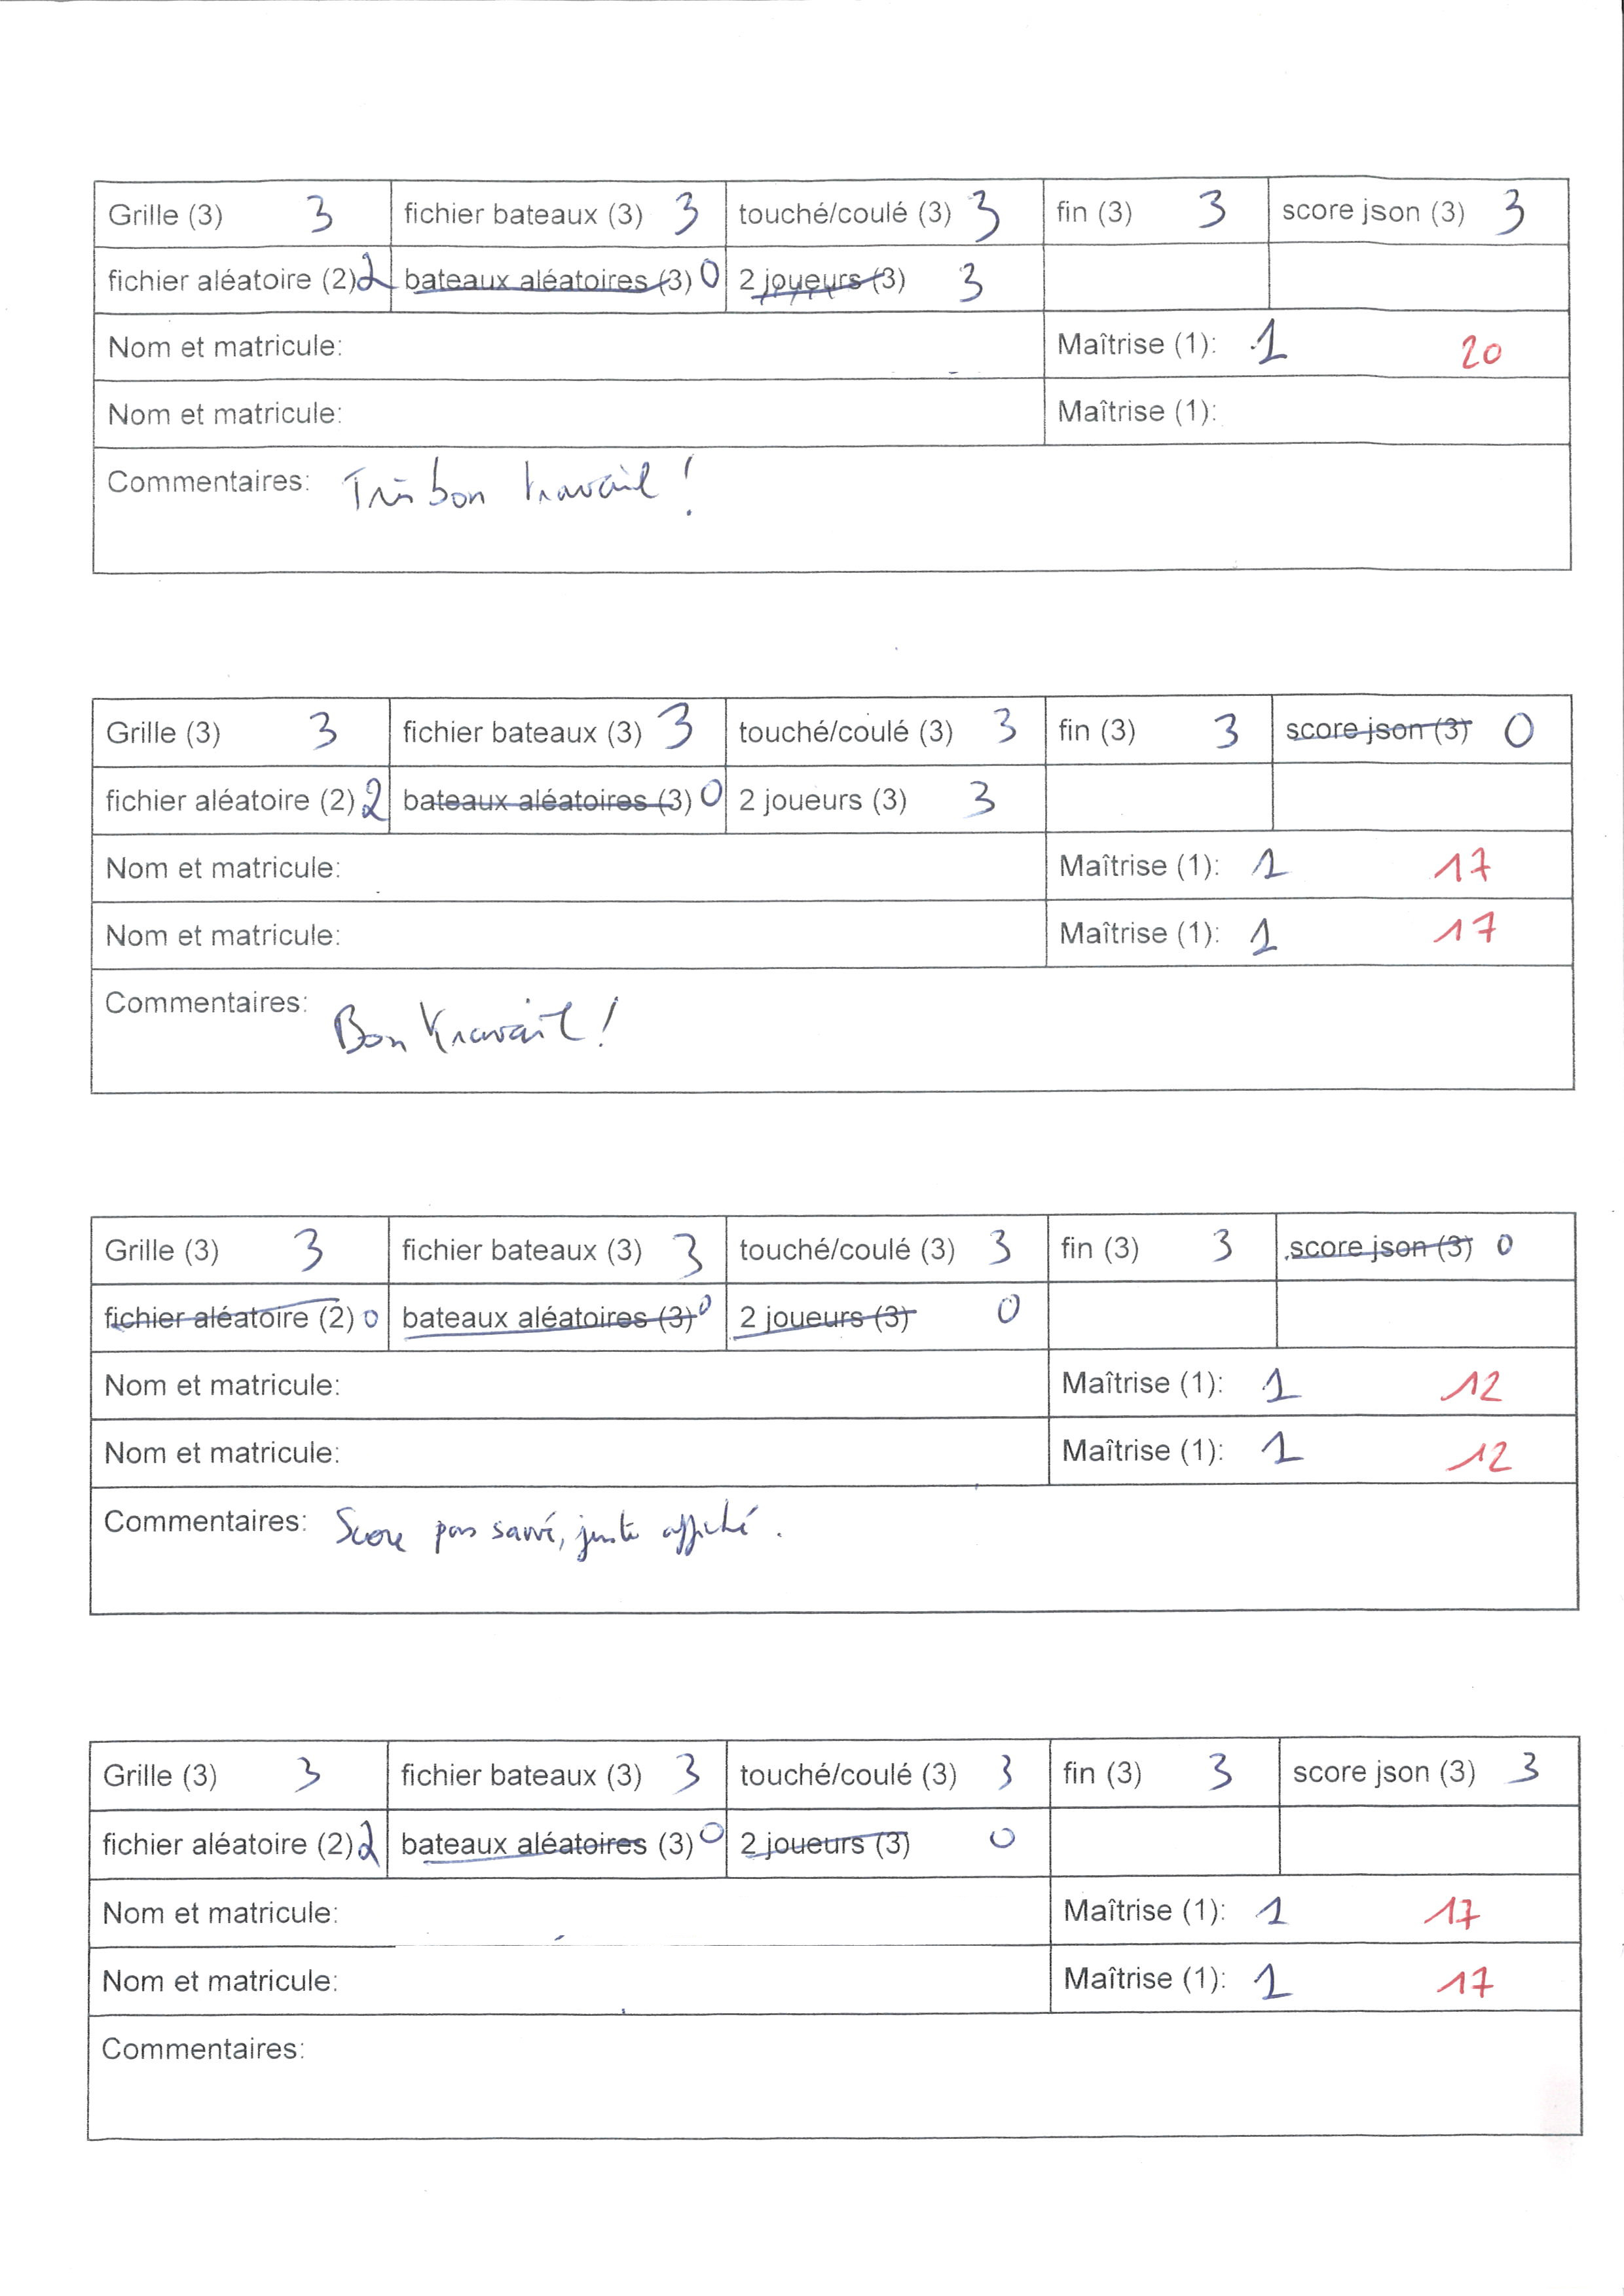 Grille (3) 3 fichier bateaux (3) 3 touché/coulé (3) 3 fin (3) 3 score json (3) 3
fichier aléatoire (2) 2 bateaux aléatoires (3) 0 2 joueurs (3) 3
Nom et matricule: Maîtrise (1): 1 20
Nom et matricule: Maîtrise (1):
Commentaires: Très bon travail !
Grille (3) 3 fichier bateaux (3) 3 touché/coulé (3) 3 fin (3) 3 score json (3) 0
fichier aléatoire (2) 2 bateaux aléatoires (3) 0 2 joueurs (3) 3
Nom et matricule: Maîtrise (1): 1 17
Nom et matricule: Maîtrise (1): 1 17
Commentaires: Bon travail !
Grille (3) 3 fichier bateaux (3) 3 touché/coulé (3) 3 fin (3) 3 score json (3) 0
fichier aléatoire (2) 0 bateaux aléatoires (3) 0 2 joueurs (3) 0
Nom et matricule: Maîtrise (1): 1 12
Nom et matricule: Maîtrise (1): 1 12
Commentaires: Score pas sauvé, juste affiché.
Grille (3) 3 fichier bateaux (3) 3 touché/coulé (3) 3 fin (3) 3 score json (3) 3
fichier aléatoire (2) 2 bateaux aléatoires (3) 0 2 joueurs (3) 0
Nom et matricule: Maîtrise (1): 1 17
Nom et matricule: Maîtrise (1): 1 17
Commentaires: